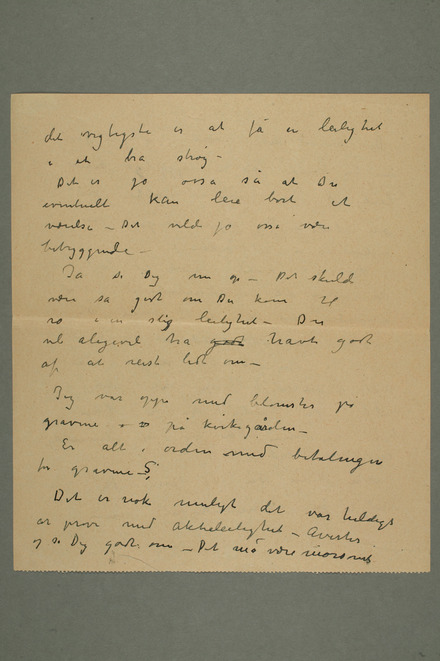 det vigtigste er at få en leilighet
i et bra strøg –
Det er jo ossa så at Du
eventuelt kan leie bort et
værelse – Det vilde jo ossa være
betryggende –
Ta Dig nu op – Det skulde
være så godt om Du kom til
ro i en slig leilighet – Du
vil alligevel ha godt havt godt
af at reist lidt om –
Jeg var oppe med blomster på
gravene på kirkegården –
Er alt i orden med betalingen
for gravene – ?
Det er nok muligt det var heldigt
at prøve med aktieleilighet – Averter
og se Dig godt om – Det må være morsomt